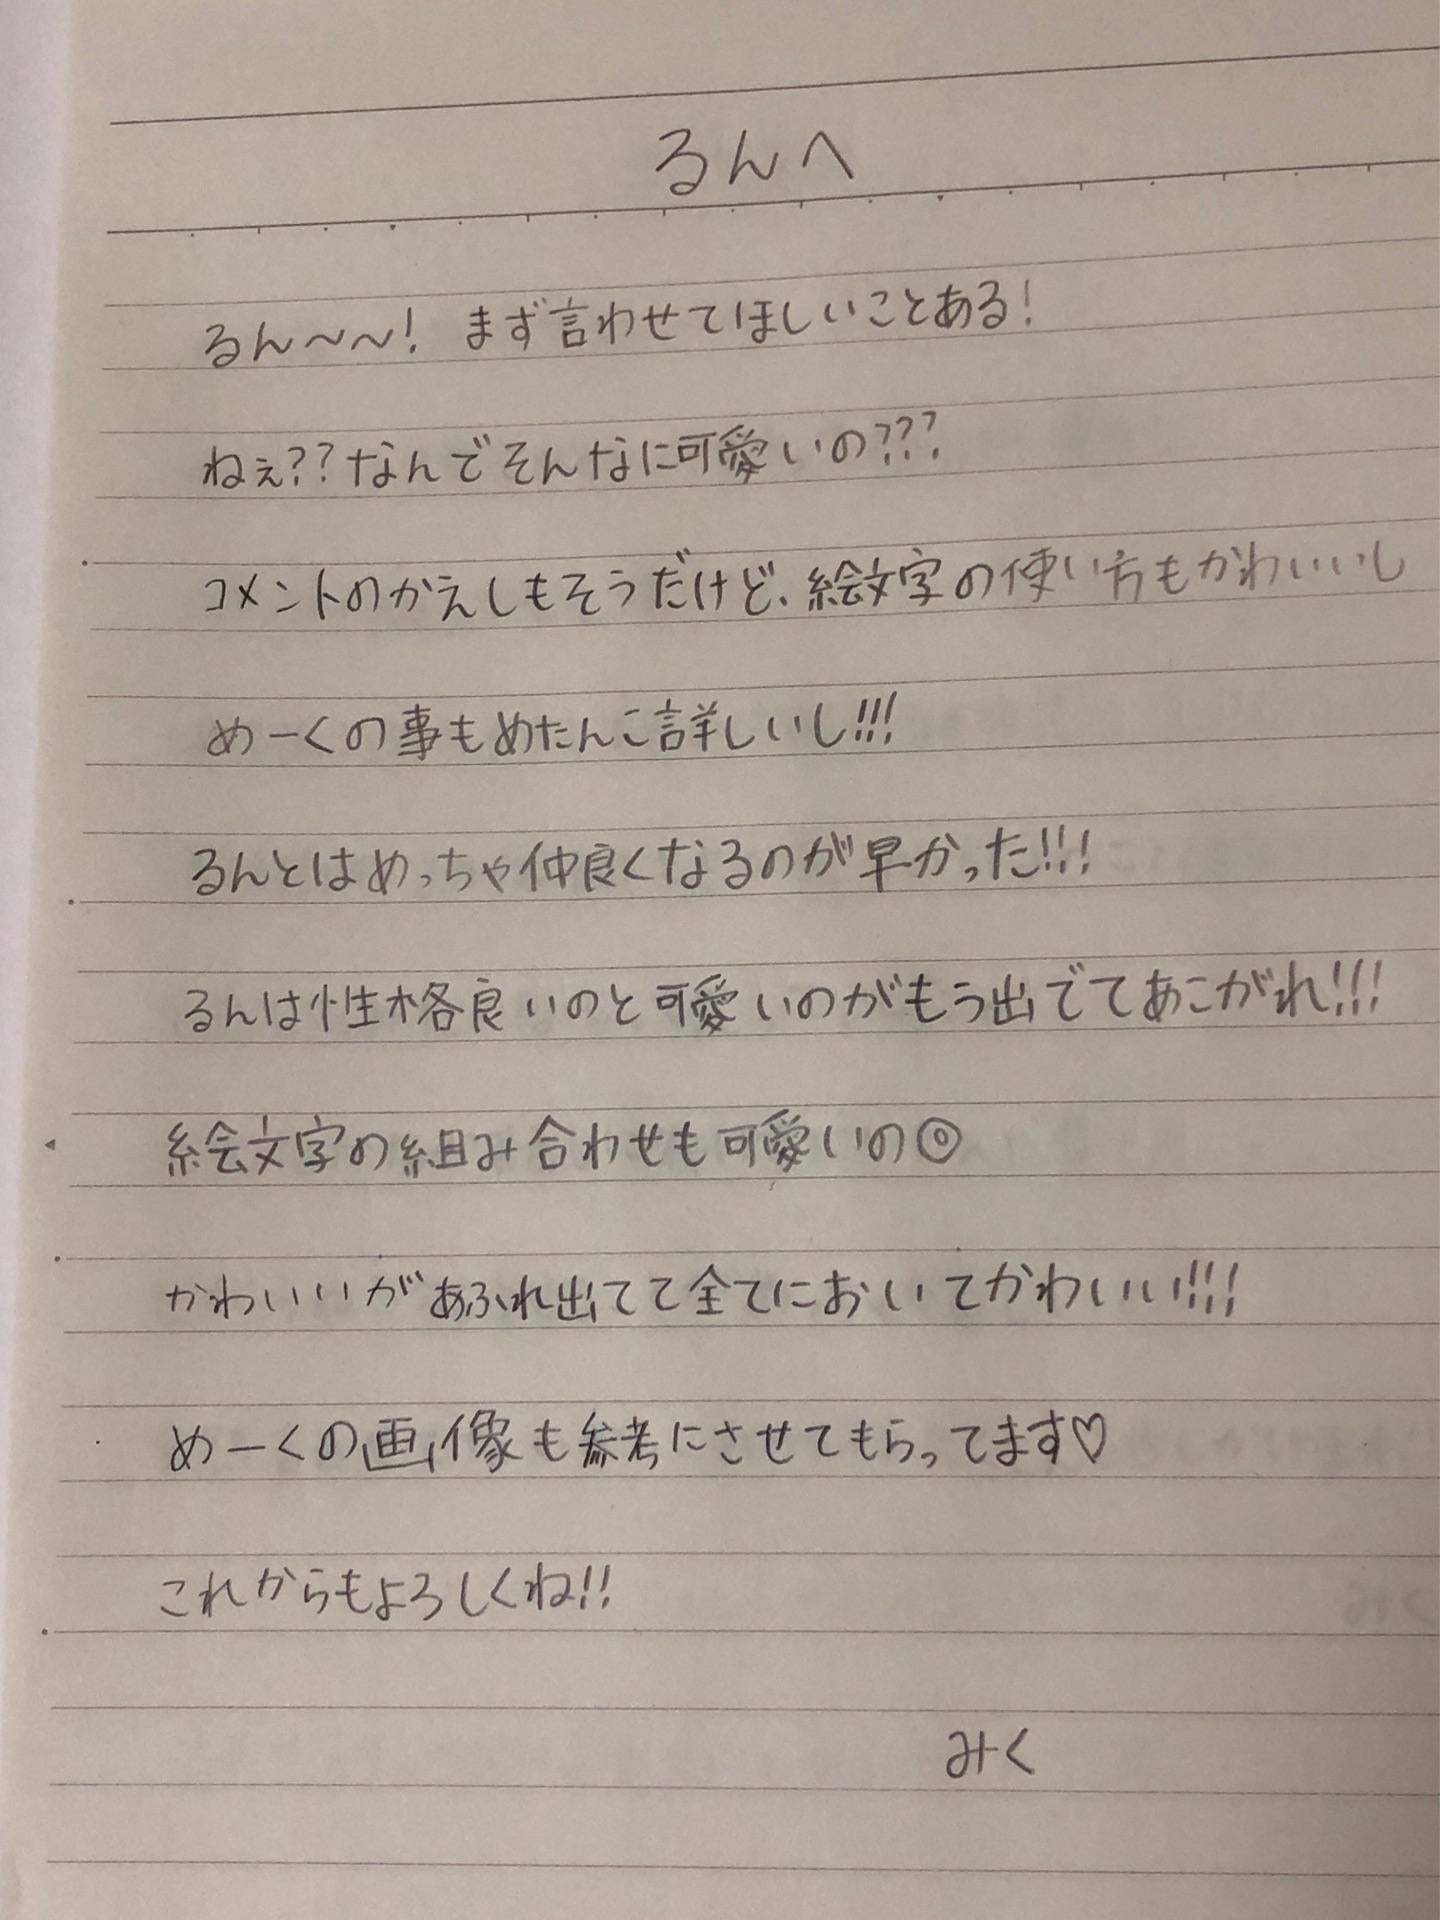 るんへ
るん〜〜! まず言わせてほしいことある!
ねぇ??なんでそんなに可愛いの???
コメントのかえしもそうだけど、絵文字の使い方もかわいいし
めーくの事もめたんこ詳しいし!!!
るんとはめっちゃ仲良くなるのが早かった!!!
るんは性格良いのと可愛いのがもう出でてあこがれ!!!
絵文字の組み合わせも可愛いの◎
かわいいがあふれ出てて全てにおいてかわいい!!!
めーくの画像も参考にさせてもらってます♡
これからもよろしくね!!
みく